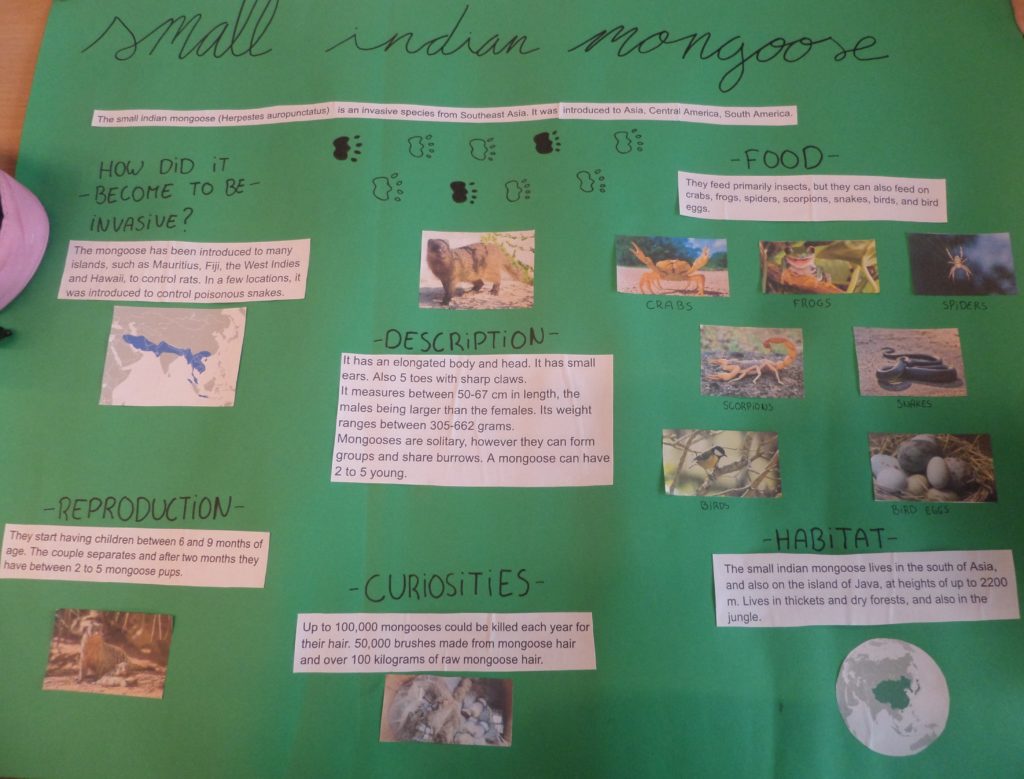 small indian mongoose
The small indian mongoose (Herpestes auropunctatus) is an invasive species from Southeast Asia. It was introduced to Asia, Central America, South America.
HOW DID IT
- BECOME TO BE -
INVASIVE?
The mongoose has been introduced to many
islands, such as Mauritius, Fiji, the West Indies
and Hawaii, to control rats. In a few locations, it
was introduced to control poisonous snakes.
-DESCRIPTION-
It has an elongated body and head. It has small
ears. Also 5 toes with sharp claws.
It measures between 50-67 cm in length, the
males being larger than the females. Its weight
ranges between 305-662 grams.
Mongooses are solitary, however they can form
groups and share burrows. A mongoose can have
2 to 5 young.
-FOOD-
They feed primarily insects, but they can also feed on
crabs, frogs, spiders, scorpions, snakes, birds, and bird
eggs.
CRABS
FROGS
SPIDERS
SCORPIONS
SNAKES
BIRDS
BIRD EGGS
-REPRODUCTION-
They start having children between 6 and 9 months of
age. The couple separates and after two months they
have between 2 to 5 mongoose pups.
-CURIOSITIES-
Up to 100,000 mongooses could be killed each year for
their hair. 50,000 brushes made from mongoose hair
and over 100 kilograms of raw mongoose hair.
-HABITAT-
The small indian mongoose lives in the south of Asia,
and also on the island of Java, at heights of up to 2200
m. Lives in thickets and dry forests, and also in the
jungle.